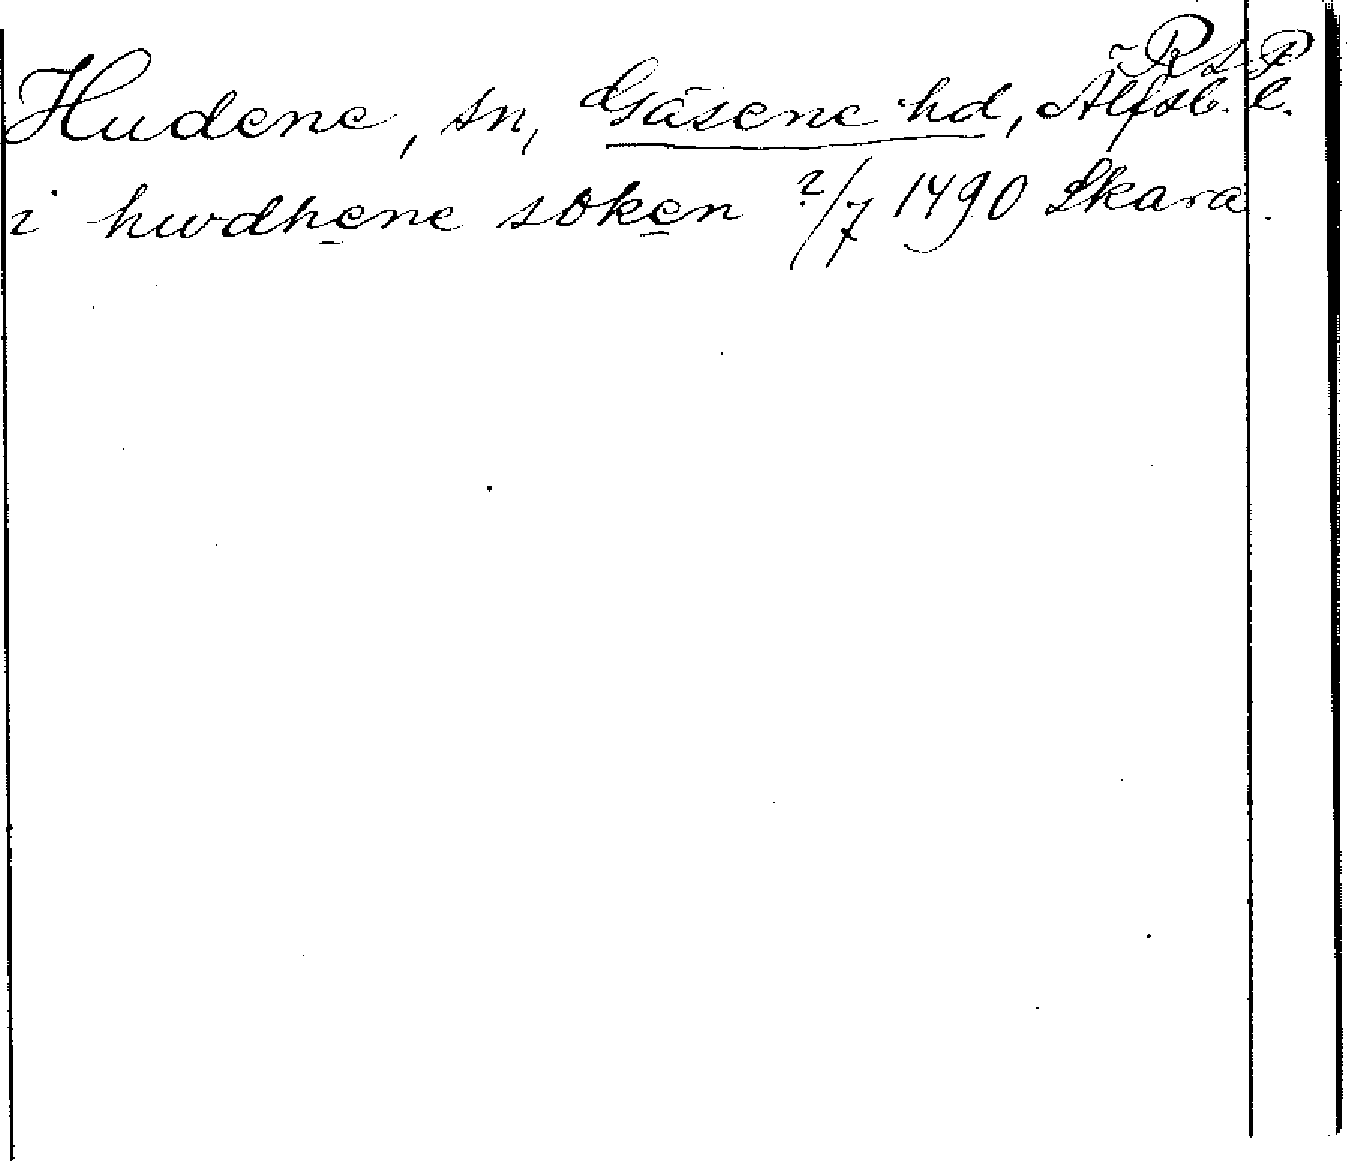 RAP
Hudene, sn, Gäsene hd, Älfsb. l.
i hwdhene soken 2/7 1490 Skara.